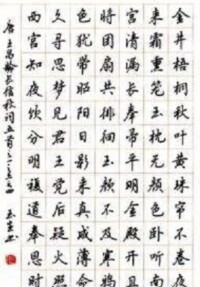 金井梧桐秋叶黄珠帘不卷夜
来霜熏笼玉枕无颜色卧听南
宫清漏长奉帚平明金殿开且
将团扇共徘徊玉颜不及寒鸦
色犹带昭阳日影来真成薄命
久寻思梦见君王觉后疑火照
西宫知夜饮分明複道奉恩时
唐王昌龄长信秋词五首之一三四